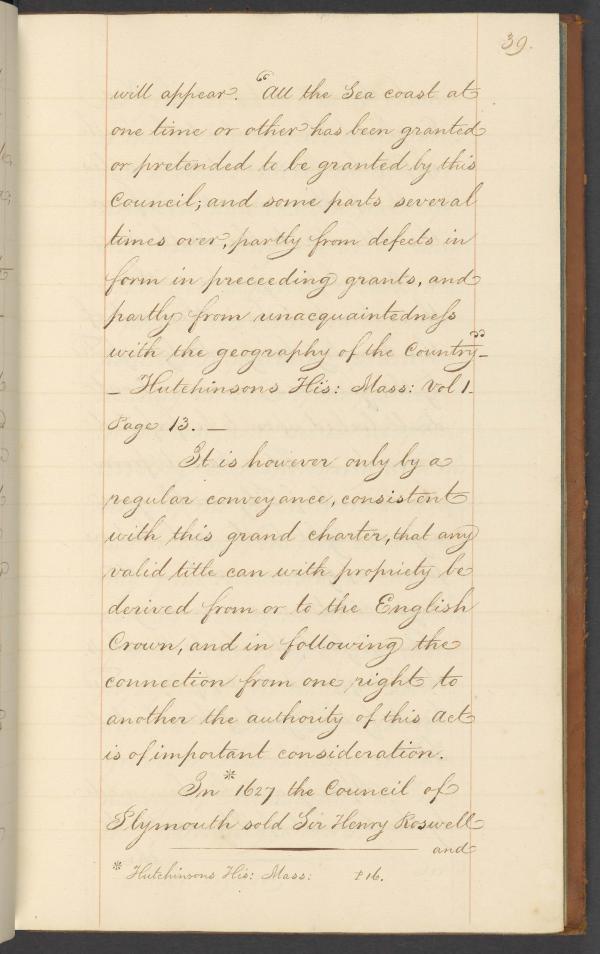 39.
will appear. "All the Sea coast at
one time or other has been granted
or pretended to be granted by this
Council; and some parts several
times over, partly from defects in
form in preceeding grants, and
partly from unacquaintedness
with the geography of the Country"_
_ Hutchinsons His: Mass: Vol 1.
Page 13. _
It is however only by a
regular conveyance, consistent
with this grand charter, that any
valid title can with propriety be
derived from or to the English
Crown, and in following the
connection from one right to
another the authority of this act
is of important consideration.
In * 1627 the Council of
Plymouth sold Sir Henry Roswell
and
* Hutchinsons His: Mass: P 16.